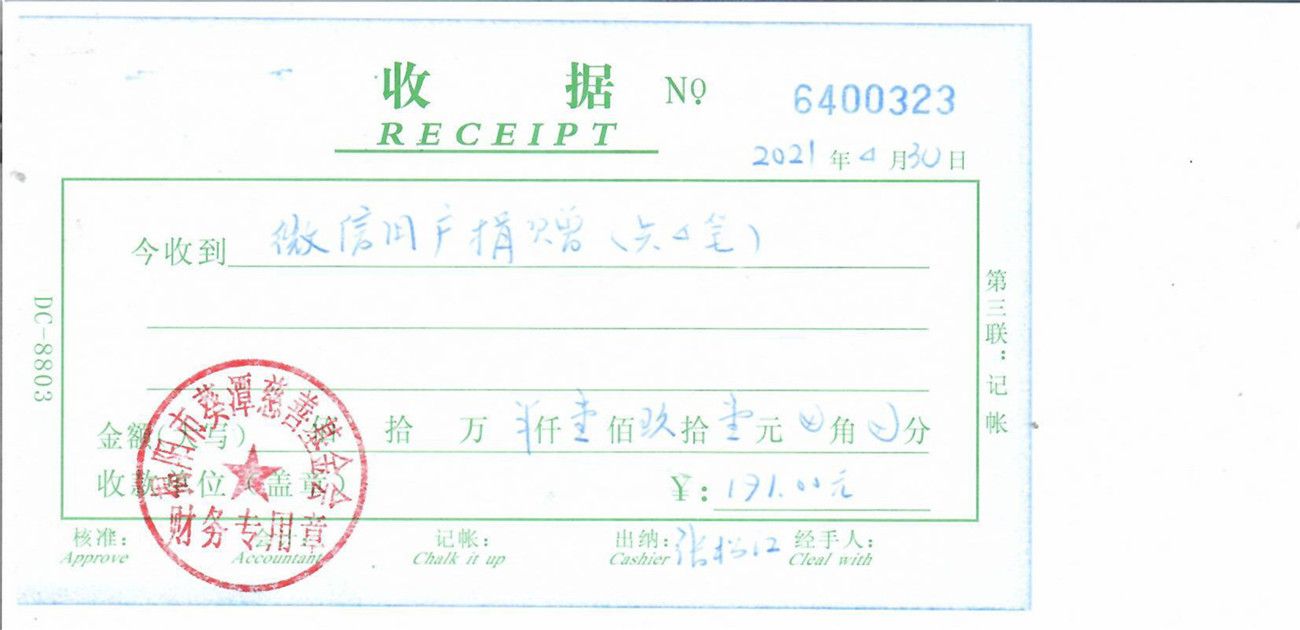 收 据 Nọ 6400323
RECEIPT
2021 年 4 月 30 日
今收到 微信用户捐赠(共4笔)
第三联:记帐
DC-8803
金额(大写) 佰 拾 万 仟 壹 佰 玖 拾 壹 元 角 分
收款单位(盖章) ¥: 191.00元
阳市葵潭慈善基金会
财务专用章
核准: 会计: 记帐: 出纳: 张松江 经手人:
Approve Accountant Chalk it up Cashier Cleal with